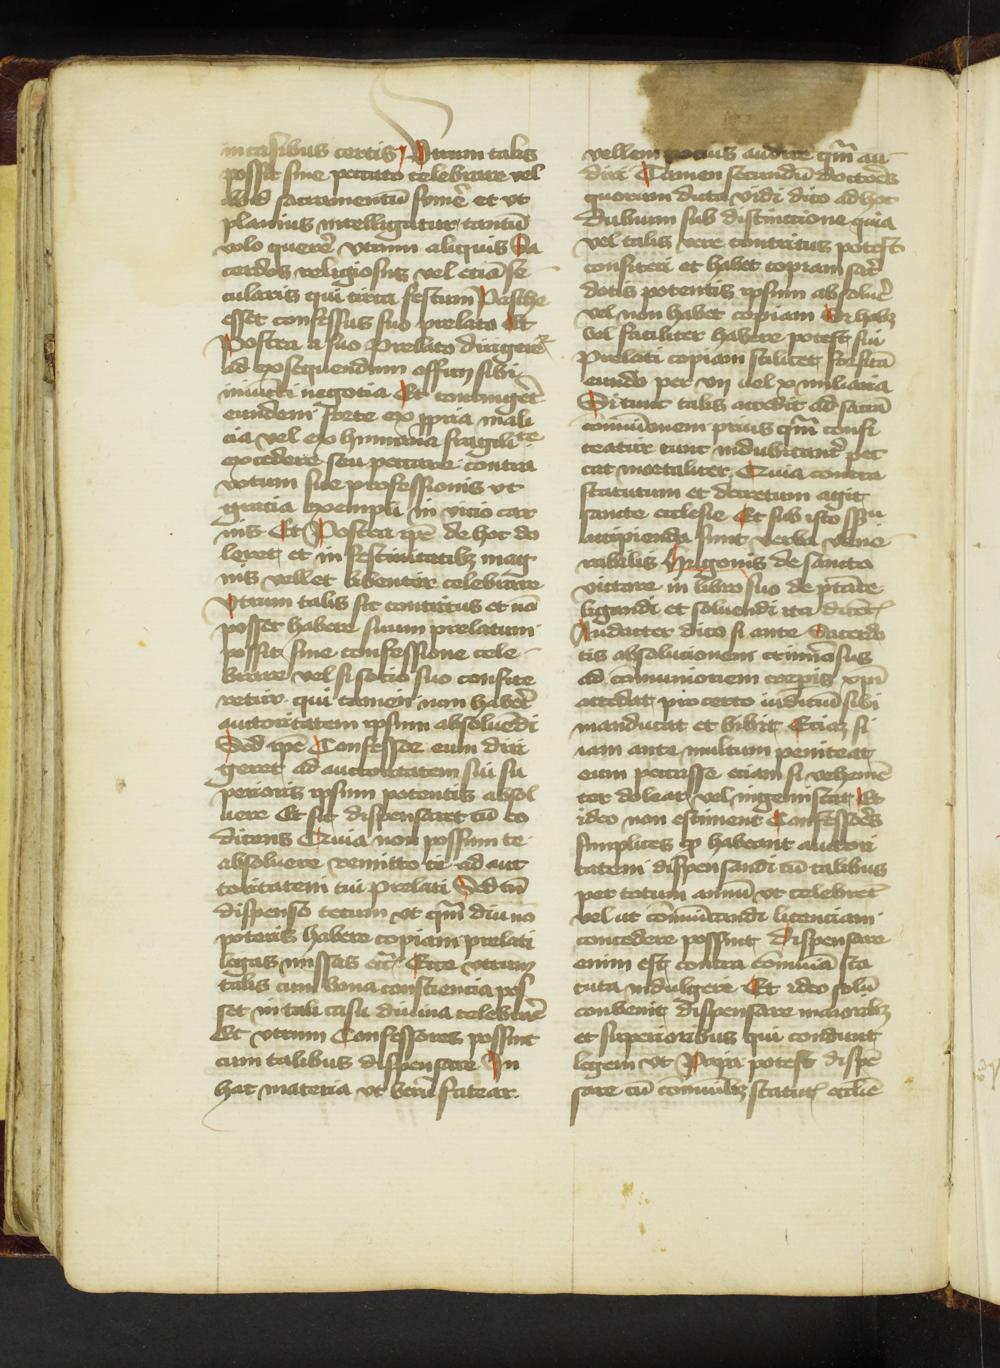 in casibus certis Utrum talis
possit sine peccato celebrare vel
illud sacramentū sumē̄ et ut
planius intelligatur tantū
volo querē̄ vtrum aliquis Sa
cerdos religiosus vel etiā se
cularis qui circa festum Pasche
esset confessus suo prelato Et
Postea a suo Prelato dirigeretr
ad exsequendum offm̄ sibi
iniūcti negotia Et contingēt
eundem forte ex ꝓpria mali
cia vel ex humana fragilite
excedere seu peccare contra
votum sue professionis vt
gracia exempli in vicio car
nis Et Postea ip̄e de hoc do
leret et in festiuitatibꝫ mag
nis vellet libenter celebrare
Vtrum talis sic contritus et nō
posset habere suum prelatum
possit sine confessione cele
brare vel si socio suo confite
retur qui tamen non habēt
auctoritatem ipsum absoluēdi
Sed ip̄e Confessor eum diri
geret ad auctoritatem sui su
perioris ipsum potentis absol
uere Et sic dispensaret cū eo
dicens Quia non possum te
absoluere remitto te ad auc
toritatem tui prelati Sed tn̄
dispenso tecum vt qm̄ diu nō
poteris habere copiam prelati
legas missas etc̄ Ecce vtrum
talis cum bona consciencia pos
set in tali casu diuina celebrar̄e
Et vtrum Confessores possunt
cum talibus dispensare In
hac materia vt verū fatear
vellem pocius audire qm̄ au
diri Tamen secundū doctores
quorum dicta vidi dico ad hoc
dubium sub distinctione quia
vel talis vere contritus potest
confiteri et habet copiam sacer̄
dotis potentis ipsum absoluēr
vel non habet copiam Si habꝫ
vel faciliter habere potest sui
Prelati copiam scilicet forsitā
eundo per vii uel x miliaria
Si tunc talis accedit ad sacrā
comūionem prius qm̄ confi
teatur tunc indubitantēr pec
cat mortaliter Quia contra
statutum et decretum agit
sancte ecclesie Et sub isto ssu
accipienda sunt verba vene
rabilis Hugonis de sancto
victore in libro suo de ptāte
ligandi et soluendi ita dicēt
Audacter dico si ante Sacerdo
tis absolucionem criminosus
ad comunionem corporis xpī
accedat pro certo iudiciū sibi
manducat et bibit Eciaꝫ si
iam anta multum peniteat
eum peccasse eciam si vehemē
ter doleat vel ingemiscat Et
ideo non estiment Confessores
simplices ꝙ habeant auctori
tatem dispensandi cū talibus
per totum annū vt celebrēt
vel ut comūicandi licenciam
concedere possint Dispensare
enim est contra comūia sta
tuta indulgere Et ideo solū
conuenit dispensare maioribꝫ
et superioribus qui condunt
legem vt Papa potest dispē
sare cū comūibꝫ statut ecclīe